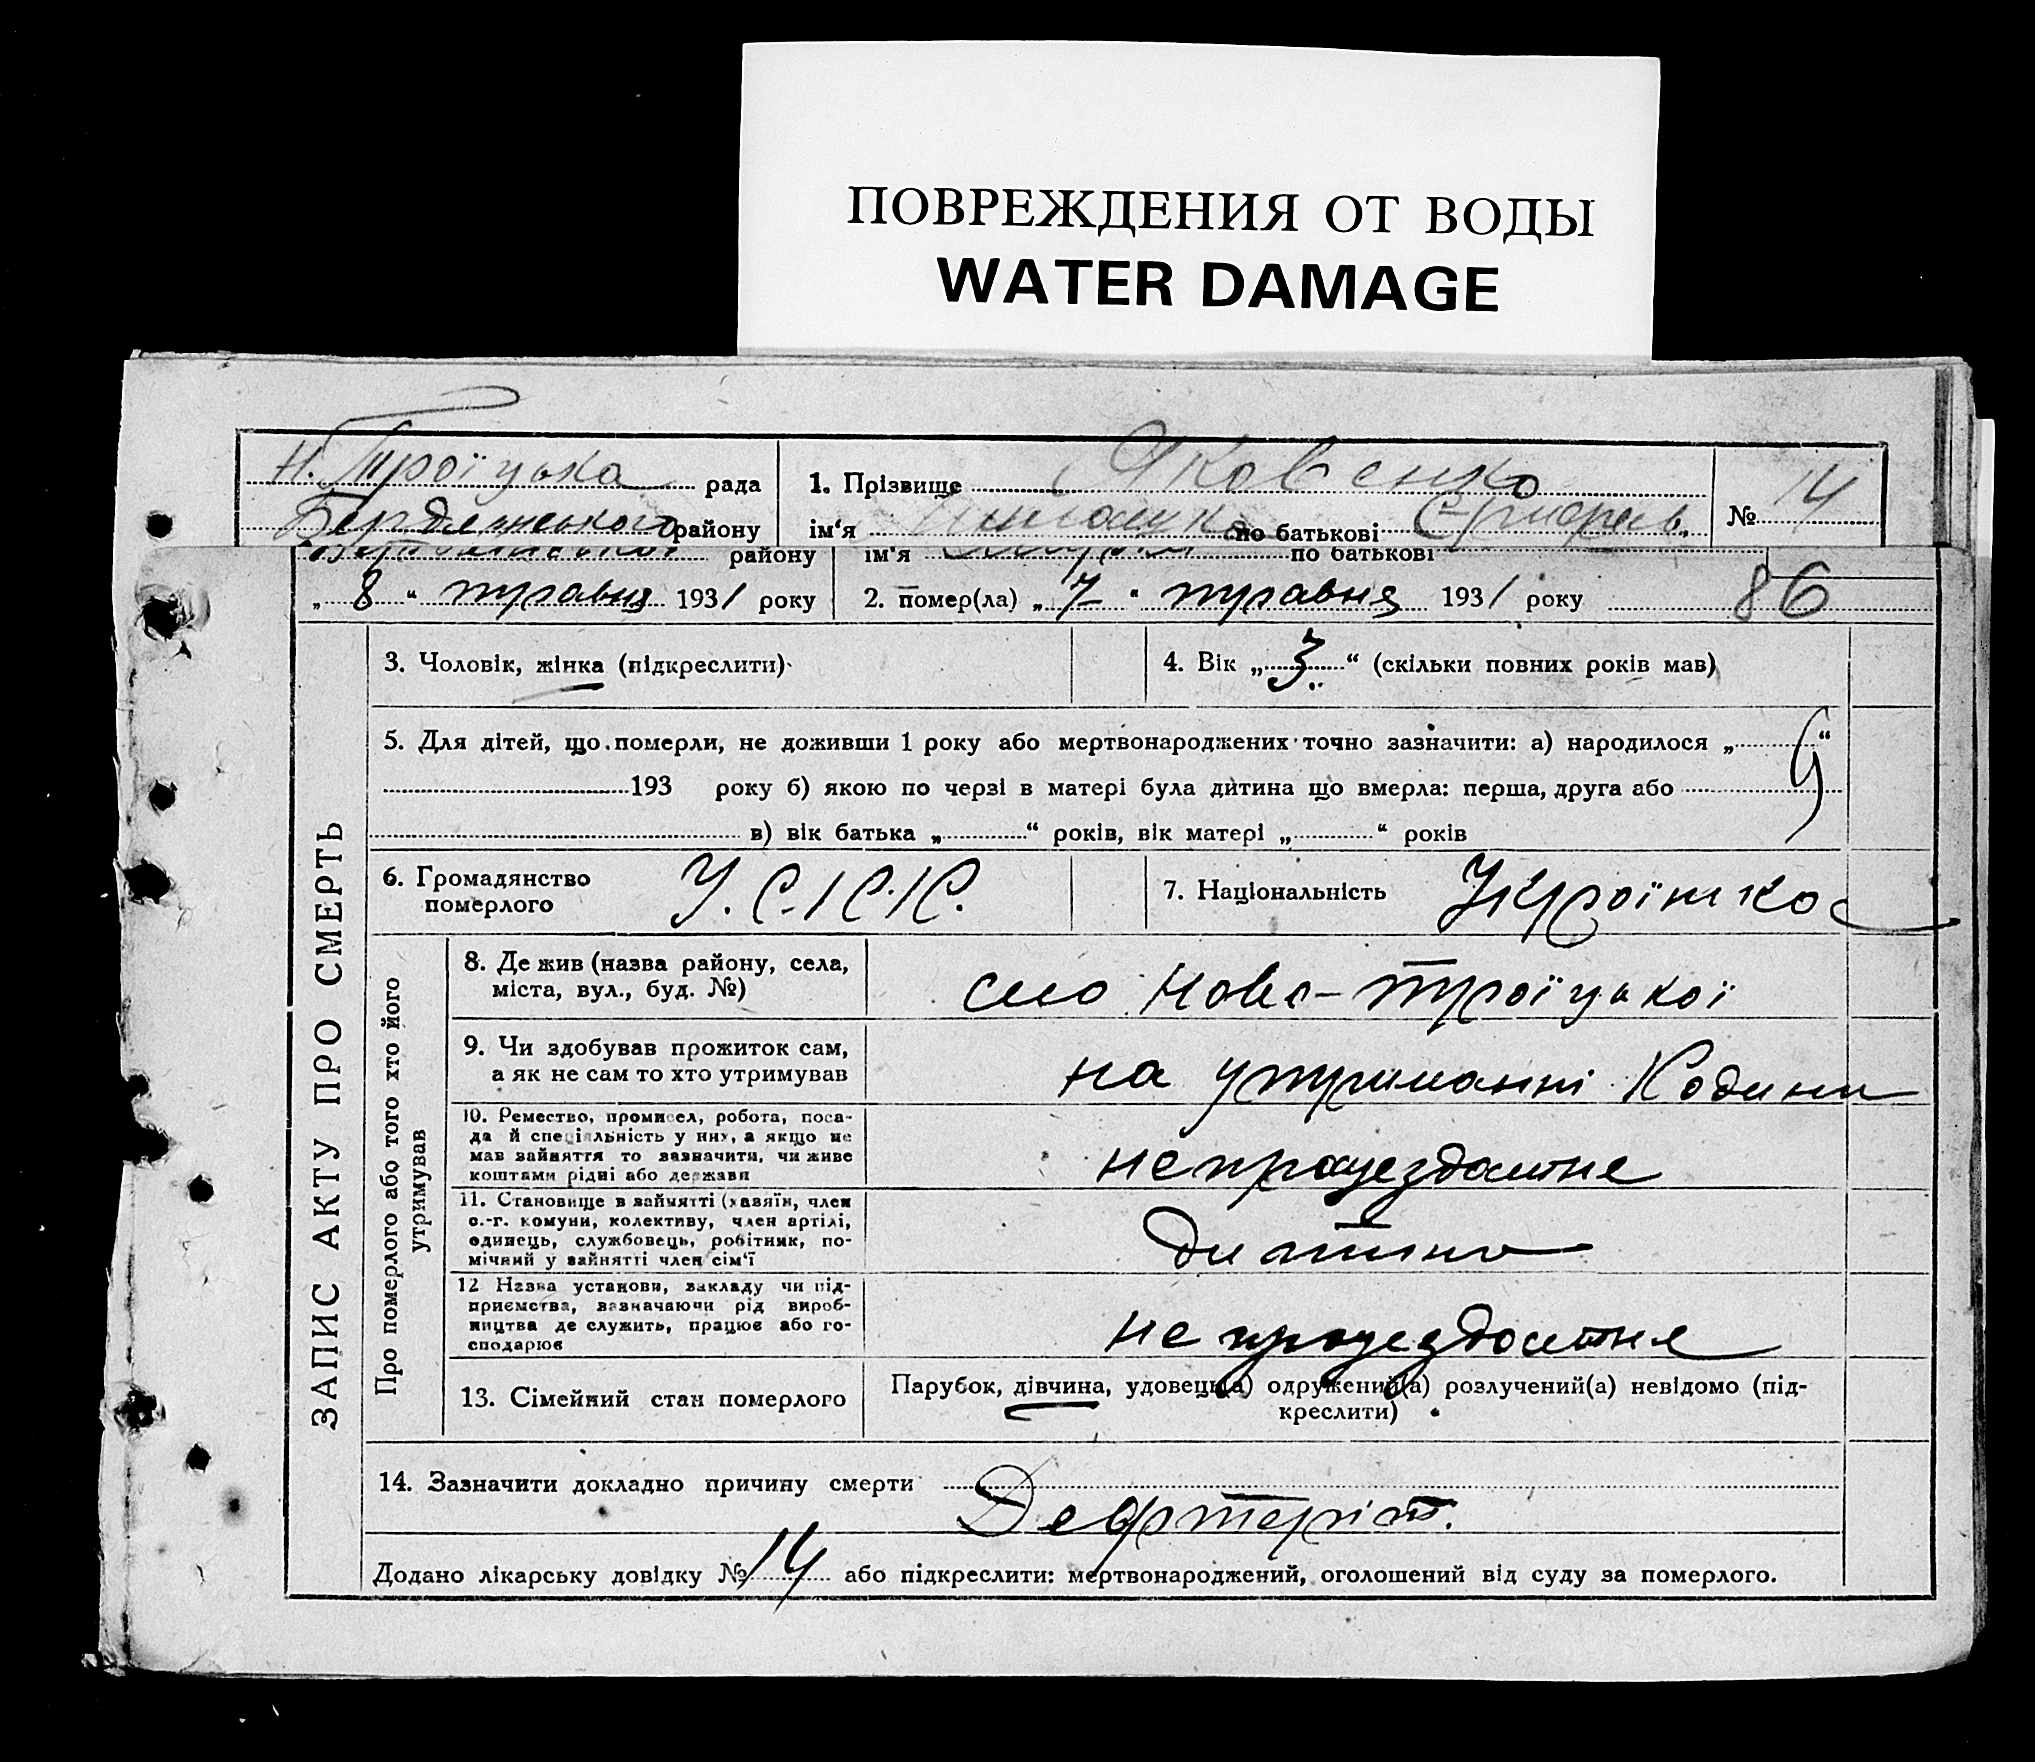 ПОВРЕЖДЕНИЯ ОТ ВОДЫ
WATER DAMAGE
Н. Троїцька рада
1. Прізвище Яковенко
№ 14
Бердянського району
ім‘я по батькові
району ім‘я по батькові
„ 8 “ травня 1931 року
2. помер(ла) „ 7 “ травня 1931 року
86
3. Чоловік, жінка (підкреслити)
4. Вік „ 3 “ (скільки повних років мав)
5. Для дітей, що померли, не доживши 1 року або мертвонароджених точно зазначити: а) народилося „ “
193 року б) якою по черзі в матері була дитина що вмерла: перша, друга або
в) вік батька „ “ років, вік матері „ “ років
6. Громадянство
померлого
У.С.Р.Р.
7. Національність Україїнка
ЗАПИС АКТУ ПРО СМЕРТЬ
Про померлого або того хто його
утримував
8. Де жив (назва району, села,
міста, вул., буд. №)
село Ново-Троїцької
9. Чи здобував прожиток сам,
а як не сам то хто утримував
на утриманні Родини
10. Ремество, промисел, робота, поса-
да й спеціяльність у них, а якщо не
мав зайняття то зазначити, чи живе
коштами рідні або держави
непрацездатне
11. Становище в зайнятті (хазяїн, член
с.-г. комуни, колективу, член артілі,
одинець, службовець, робітник, по-
мічний у зайнятті член сім‘ї
дитина
12 Назва установи, закладу чи під-
приємства, зазначаючи рід вироб-
ництва де служить, працює або го-
сподарює
непрацездатне
13. Сімейний стан померлого
Парубок, дівчина, удовець(а) одружений(а) розлучений(а) невідомо (під-
креслити)
14. Зазначити докладно причину смерти
Дефтеріт.
Додано лікарську довідку № 14 або підкреслити: мертвонароджений, оголошений від суду за померлого.